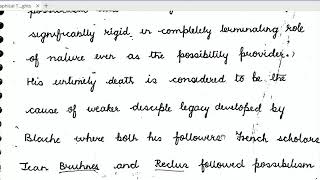 aphical T...ghts
significantly rigid in completely terminating role
of nature even as the possibility provider.)
His untimely death is considered to be the
cause of weaker desciple legacy developed by
Blache where both his followers French scholars
Jean Bruhnes and Reclus followed possibilism